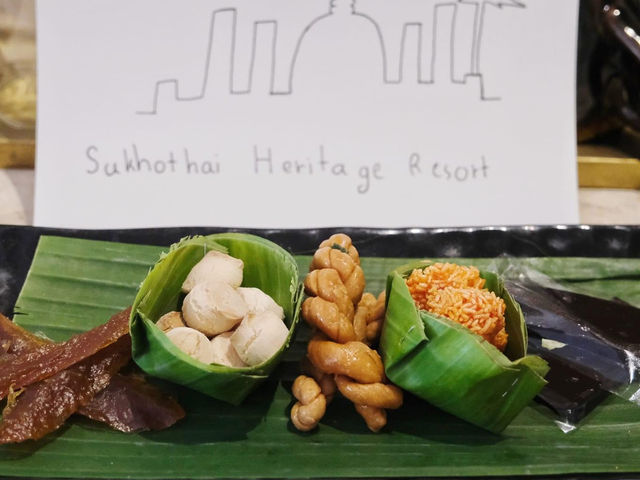 Sukhothai Heritage Resort